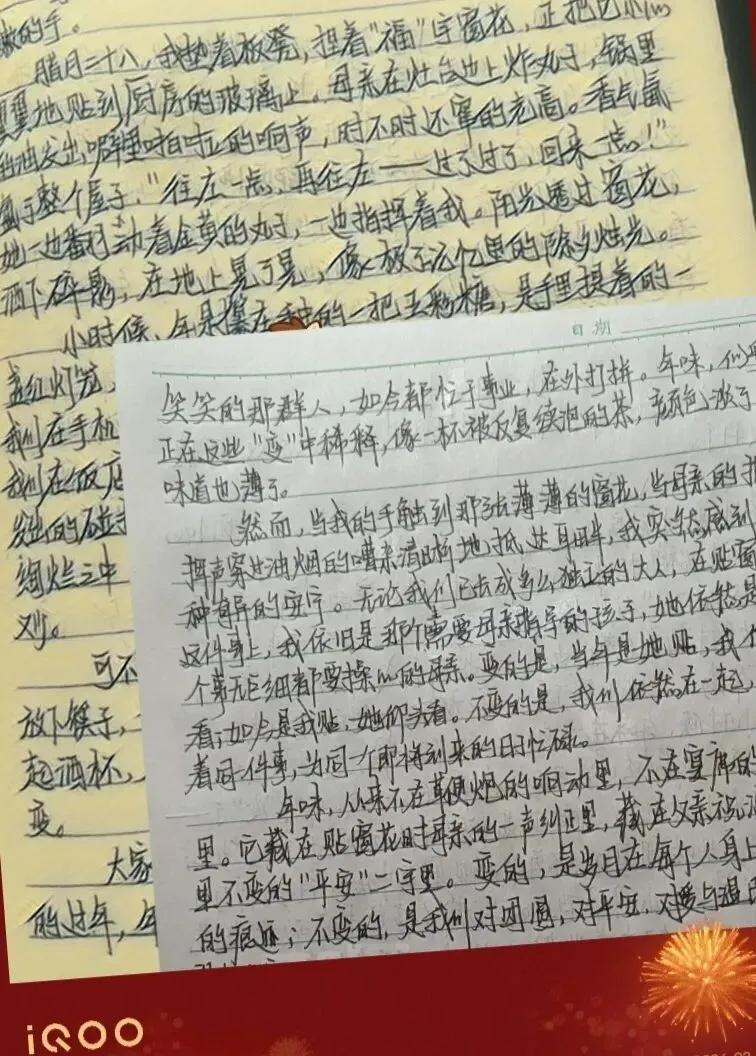 的手。
腊月二十八，我垫着板凳，捏着“福”字窗花，正把它小心
翼翼地贴到厨房的玻璃上。母亲在灶台边上炸丸子，锅里
的油发出噼里啪啦的响声，时不时还窜的老高。香气氤
氲了整个屋子，“往左一点，再往左——过了过了，回来一点！”
她一边翻动着金黄的丸子，一边指挥着我。阳光透过窗花，
洒下碎影，在地上晃了晃，像极了记忆里的除夕烛光。
小时候，年是攥在手中的一把五彩糖，是手里提着的一
盏红灯笼，
我们在手机
我们在饭店
发出的碰
绚烂之中
刻。
可不
放下筷子，
起酒杯，
变。
大家
的过年，年
日期
笑笑的那群人，如今都忙于事业，在外打拼。年味，似乎
正在这些“变”中稀释，像一杯被反复续泡的茶，颜色淡了
味道也薄了。
然而，当我的手触到那张薄薄的窗花，当母亲的指
挥声穿过油烟的嘈杂清晰地抵达耳畔，我突然感到
种奇异的安宁。无论我们已长成多么独立的大人，在贴窗
这件事上，我依旧是那个需要母亲指导的孩子，她依然是
个事无巨细都要操心的母亲。变的是，当年是她贴，我仰
看；如今是我贴，她仰头看。不变的是，我们依然在一起，
着同一件事，为同一个即将到来的日子忙碌。
年味，从来不在鞭炮的响动里，不在宴席的
里。它藏在贴窗花时母亲的一声纠正里，藏在父亲祝酒
里不变的“平安”二字里。变的，是岁月在每个人身上
的痕迹；不变的，是我们对团圆，对平安，对爱与温
iQOO